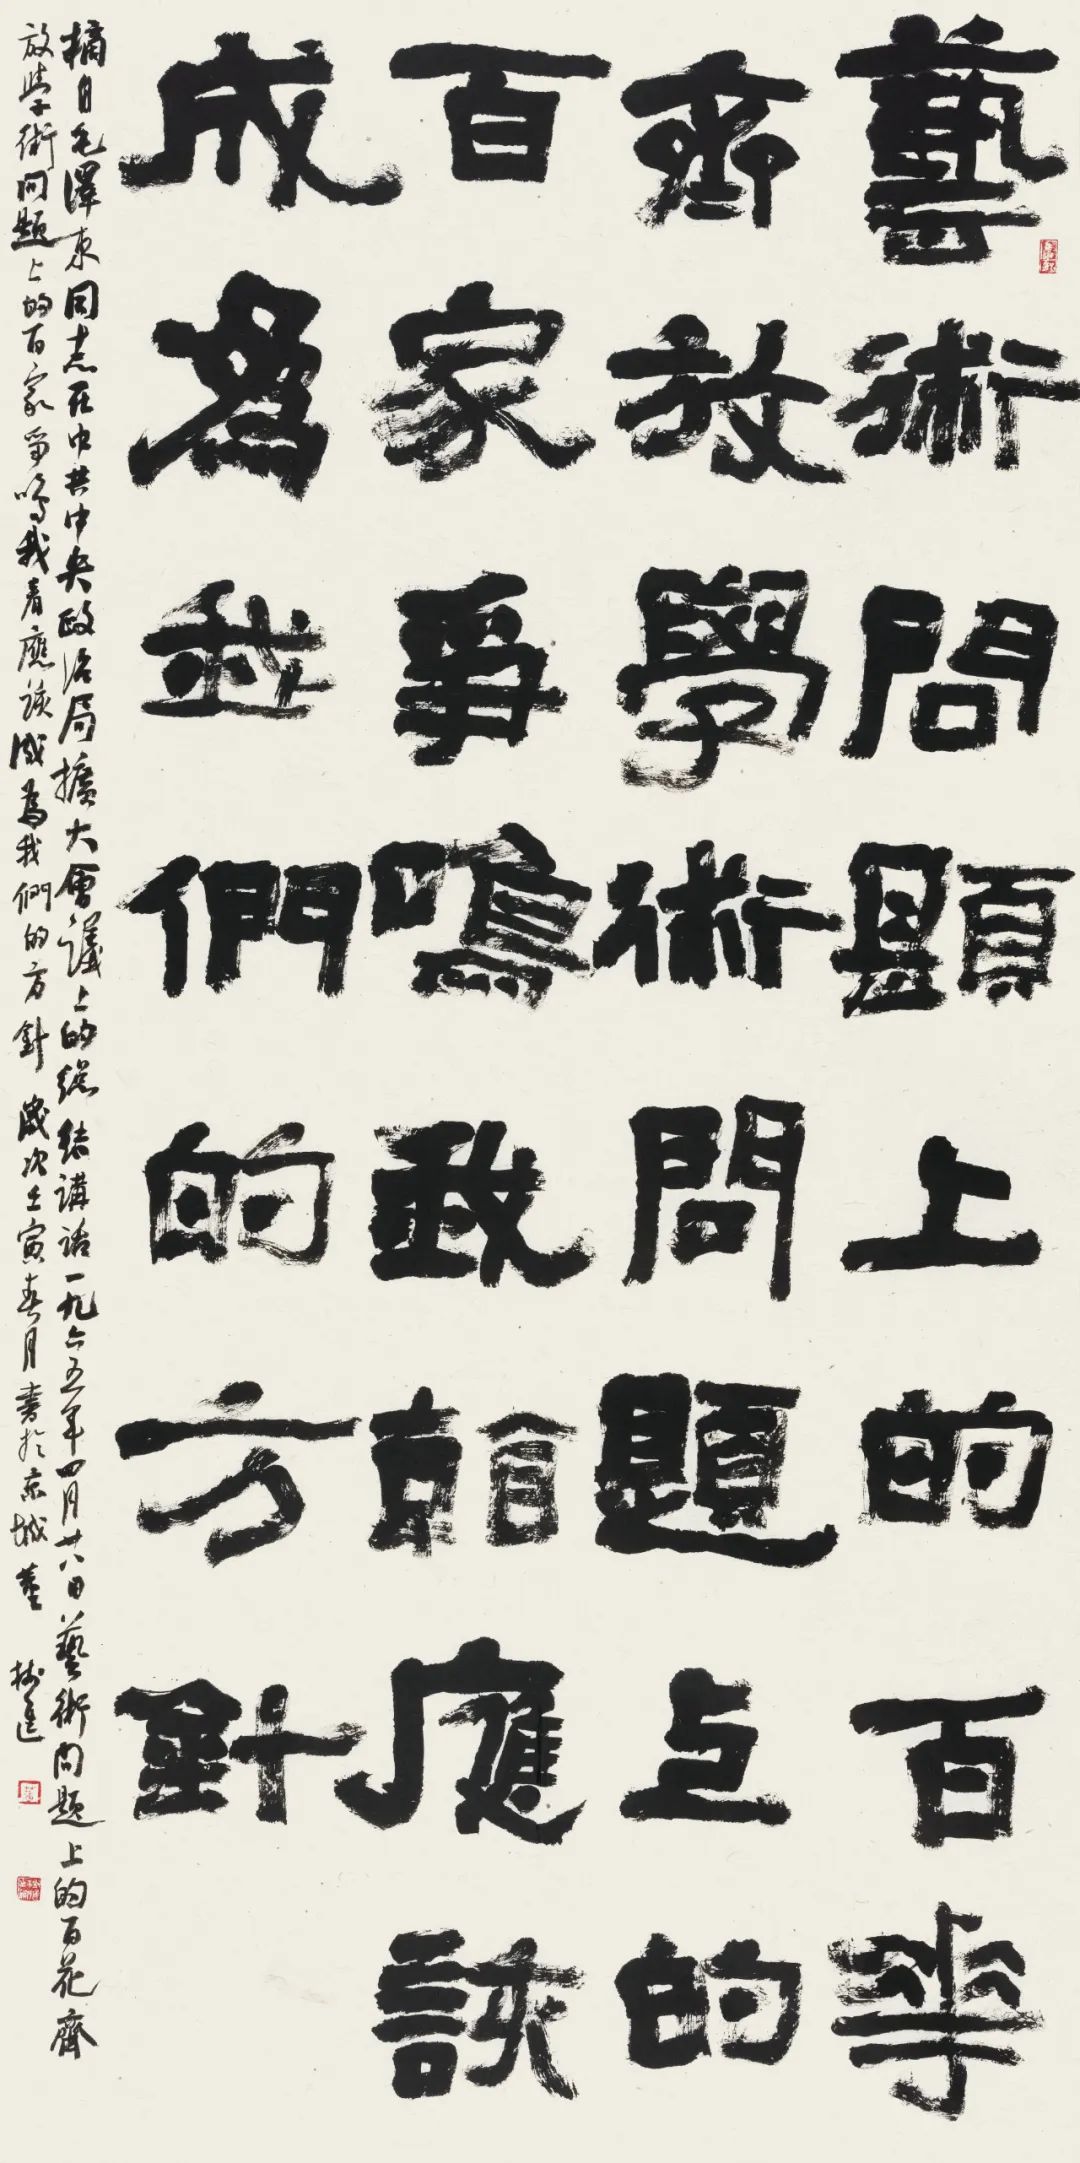 藝術問題上的百華
齊放學術問題上的
百家爭鳴我看應該
成為我們的方針
摘自毛澤東同志在中共中央政治局擴大會議上的總結講話一九六五年四月廿八日藝術問題上的百花齊
放學術問題上的百家爭鳴我看應該成為我們的方針 歲次壬寅春月書於京城